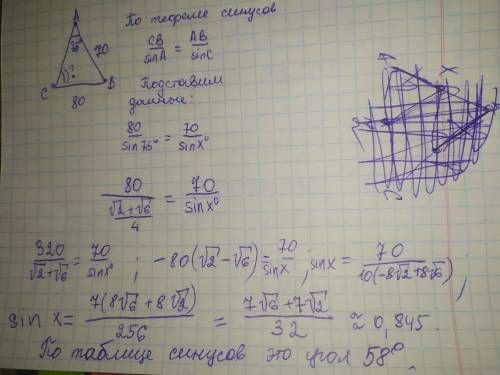 По теореме синусов
A
75°
70
C
?
B
80
CB/sinA = AB/sinC
Подставим
данные:
80/sin75° = 70/sinx°
80/((√2+√6)/4) = 70/sinx°
320/(√2+√6) = 70/sinx° ; -80(√2-√6) = 70/sinx ; sinx = 70/(10(-8√2+8√6)) ;
sin x = 7(8√6+8√2)/256 = (7√6+7√2)/32 ≈ 0,845.
По таблице синусов это угол 58°.